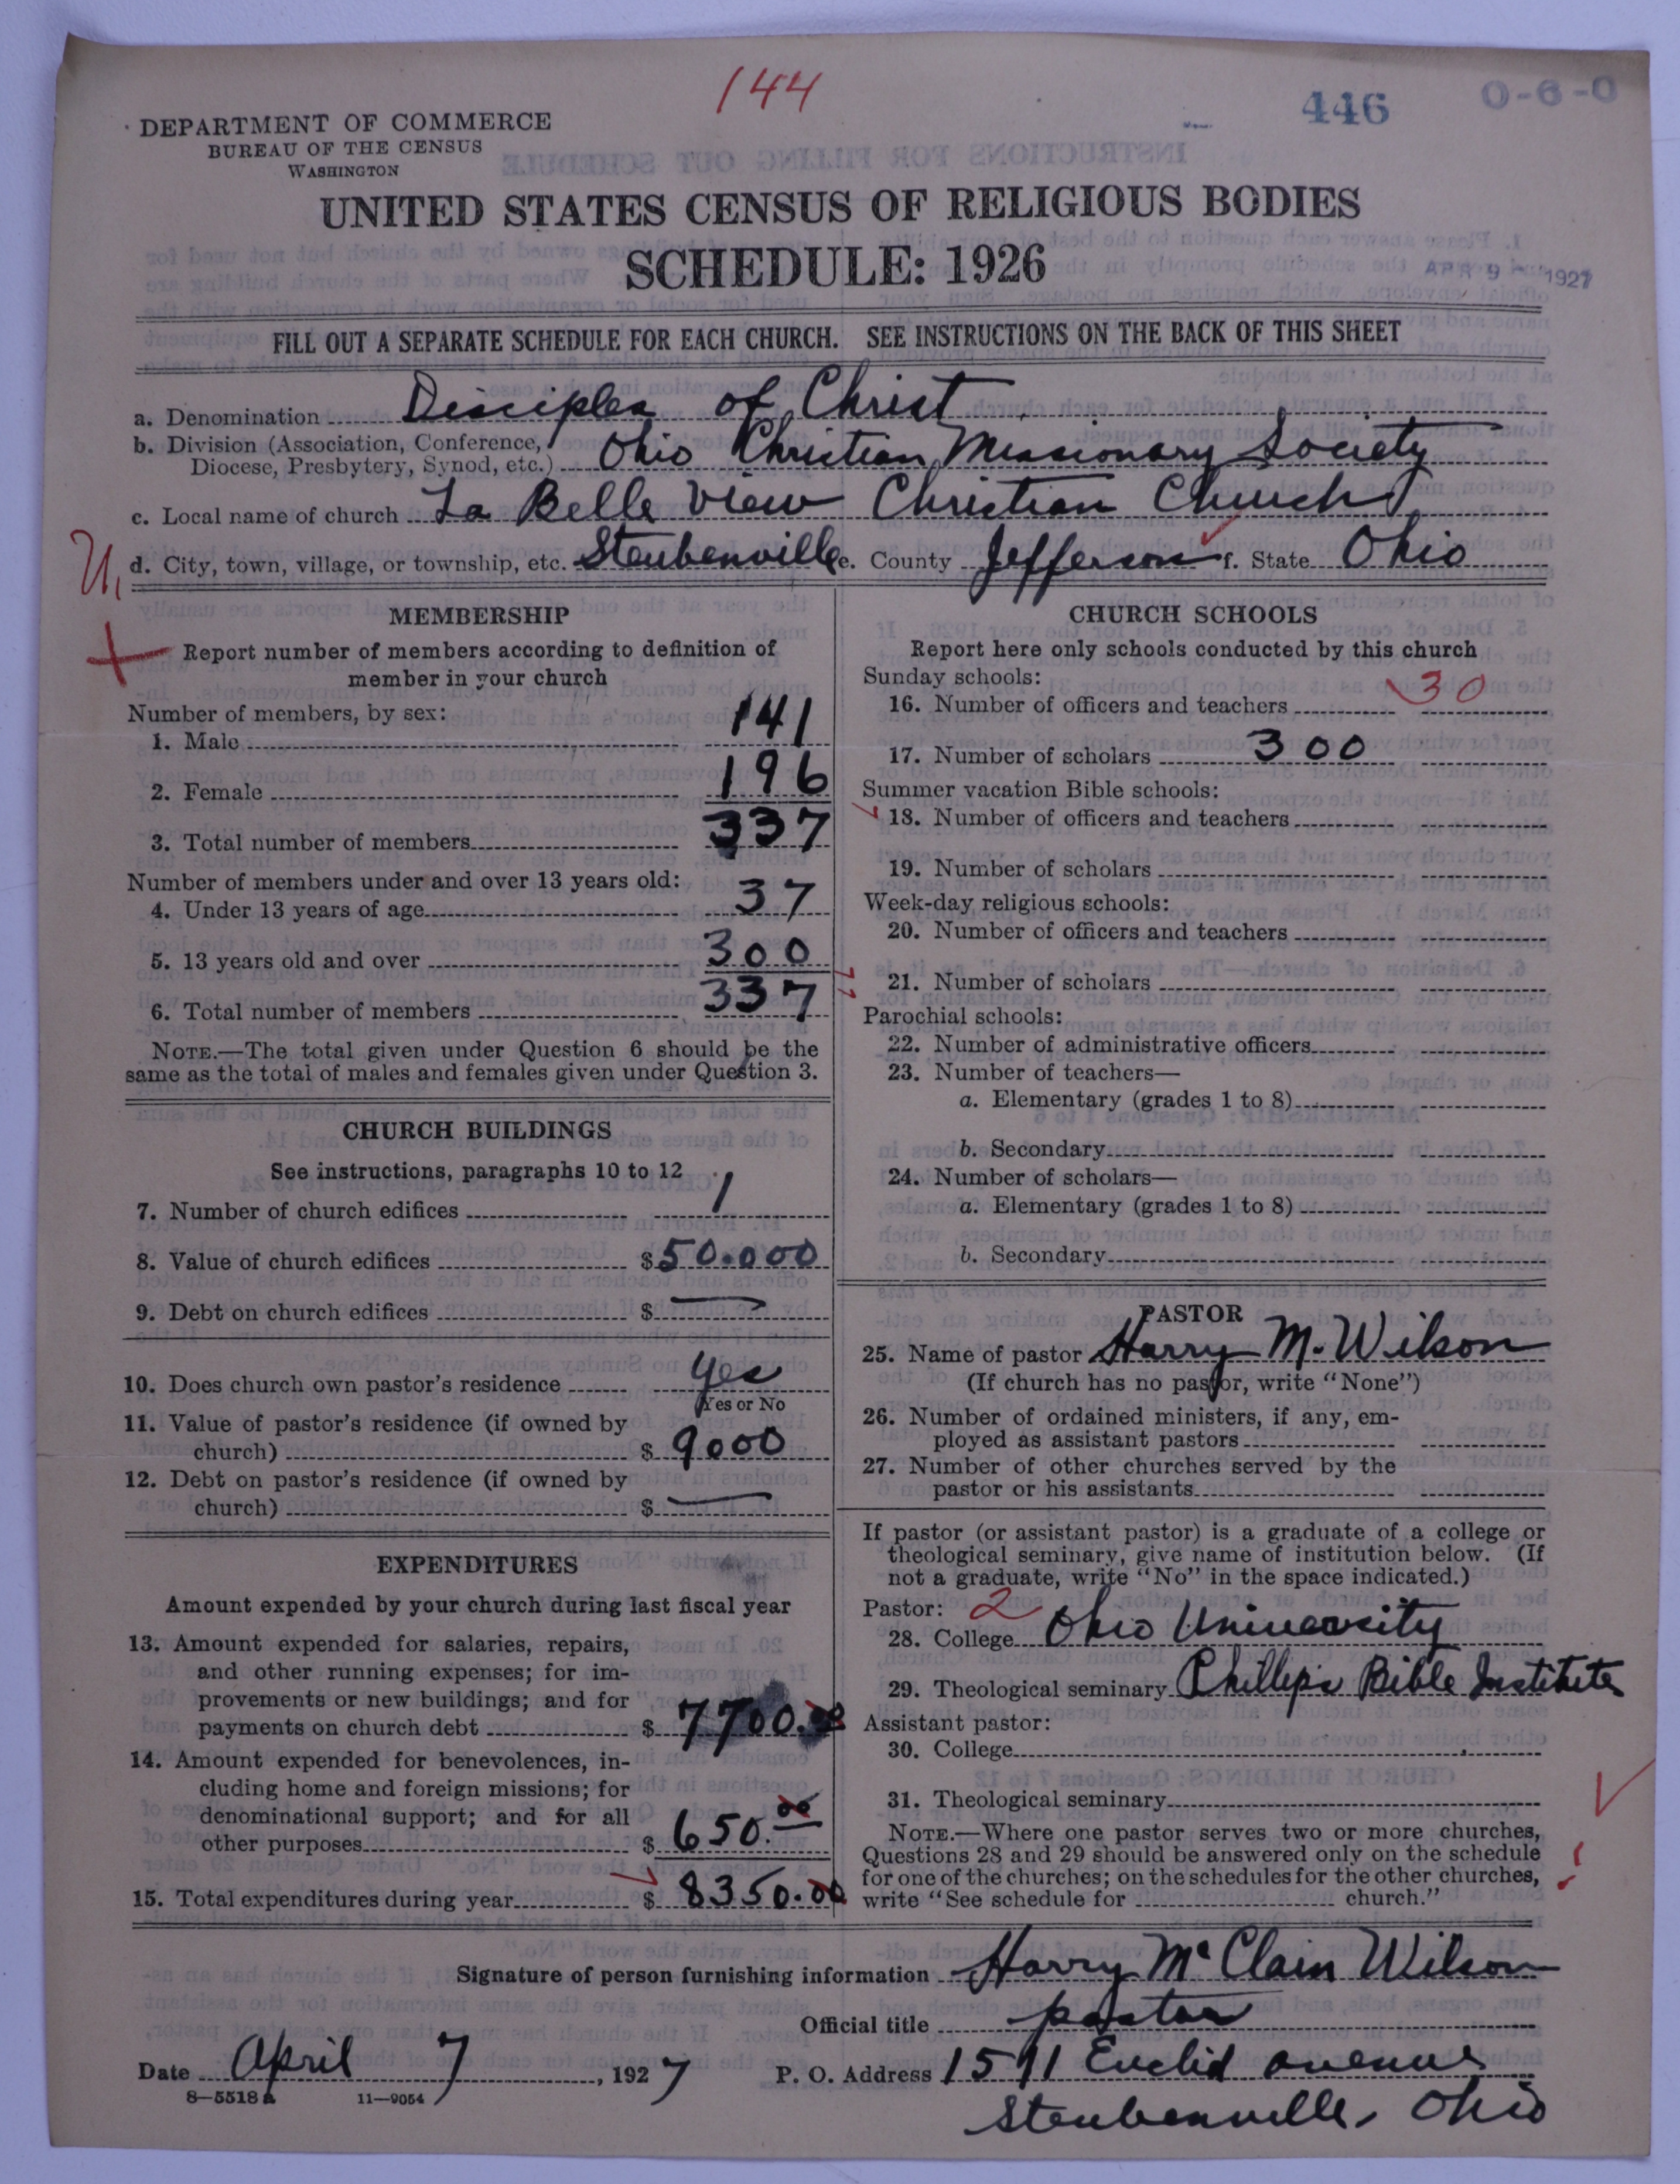 144
446
O-6-0
DEPARTMENT OF COMMERCE
BUREAU OF THE CENSUS
WASHINGTON
UNITED STATES CENSUS OF RELIGIOUS BODIES
SCHEDULE: 1926
APR 9 1927
FILL OUT A SEPARATE SCHEDULE FOR EACH CHURCH. SEE INSTRUCTIONS ON THE BACK OF THIS SHEET
a. Denomination Disciples of Christ
b. Division (Association, Conference, Diocese, Presbytery, Synod, etc.) Ohio Christian Missionary Society
c. Local name of church La Belle View Christian Church
d. City, town, village, or township, etc. Steubenville e. County Jefferson f. State Ohio
MEMBERSHIP
Report number of members according to definition of
member in your church
Number of members, by sex:
1. Male 141
2. Female 196
3. Total number of members 337
Number of members under and over 13 years old:
4. Under 13 years of age 37
5. 13 years old and over 300
6. Total number of members 337
NOTE.—The total given under Question 6 should be the
same as the total of males and females given under Question 3.
CHURCH BUILDINGS
See instructions, paragraphs 10 to 12
7. Number of church edifices 1
8. Value of church edifices $50.000
9. Debt on church edifices $ —
10. Does church own pastor's residence Yes
(Yes or No
11. Value of pastor's residence (if owned by
church) $ 9000
12. Debt on pastor's residence (if owned by
church) $ —
EXPENDITURES
Amount expended by your church during last fiscal year
13. Amount expended for salaries, repairs,
and other running expenses; for im-
provements or new buildings; and for
payments on church debt $ 7700.00
14. Amount expended for benevolences, in-
cluding home and foreign missions; for
denominational support; and for all
other purposes $ 650.00
15. Total expenditures during year $ 8350.00
CHURCH SCHOOLS
Report here only schools conducted by this church
Sunday schools:
16. Number of officers and teachers 30
17. Number of scholars 300
Summer vacation Bible schools:
18. Number of officers and teachers
19. Number of scholars
Week-day religious schools:
20. Number of officers and teachers
21. Number of scholars
Parochial schools:
22. Number of administrative officers
23. Number of teachers—
a. Elementary (grades 1 to 8)
b. Secondary
24. Number of scholars—
a. Elementary (grades 1 to 8)
b. Secondary
PASTOR
25. Name of pastor Harry M. Wilson
(If church has no pastor, write "None")
26. Number of ordained ministers, if any, em-
ployed as assistant pastors
27. Number of other churches served by the
pastor or his assistants
If pastor (or assistant pastor) is a graduate of a college or
theological seminary, give name of institution below. (If
not a graduate, write "No" in the space indicated.)
Pastor: 2
28. College Ohio University
29. Theological seminary Phillips Bible Institute
Assistant pastor:
30. College
31. Theological seminary
NOTE.—Where one pastor serves two or more churches,
Questions 28 and 29 should be answered only on the schedule
for one of the churches; on the schedules for the other churches,
write "See schedule for church."
Signature of person furnishing information Harry McClain Wilson
Official title pastor
Date April 7, 1927 P. O. Address 1511 Euclid avenue
Steubenville, Ohio
8—5518 a 11—9054